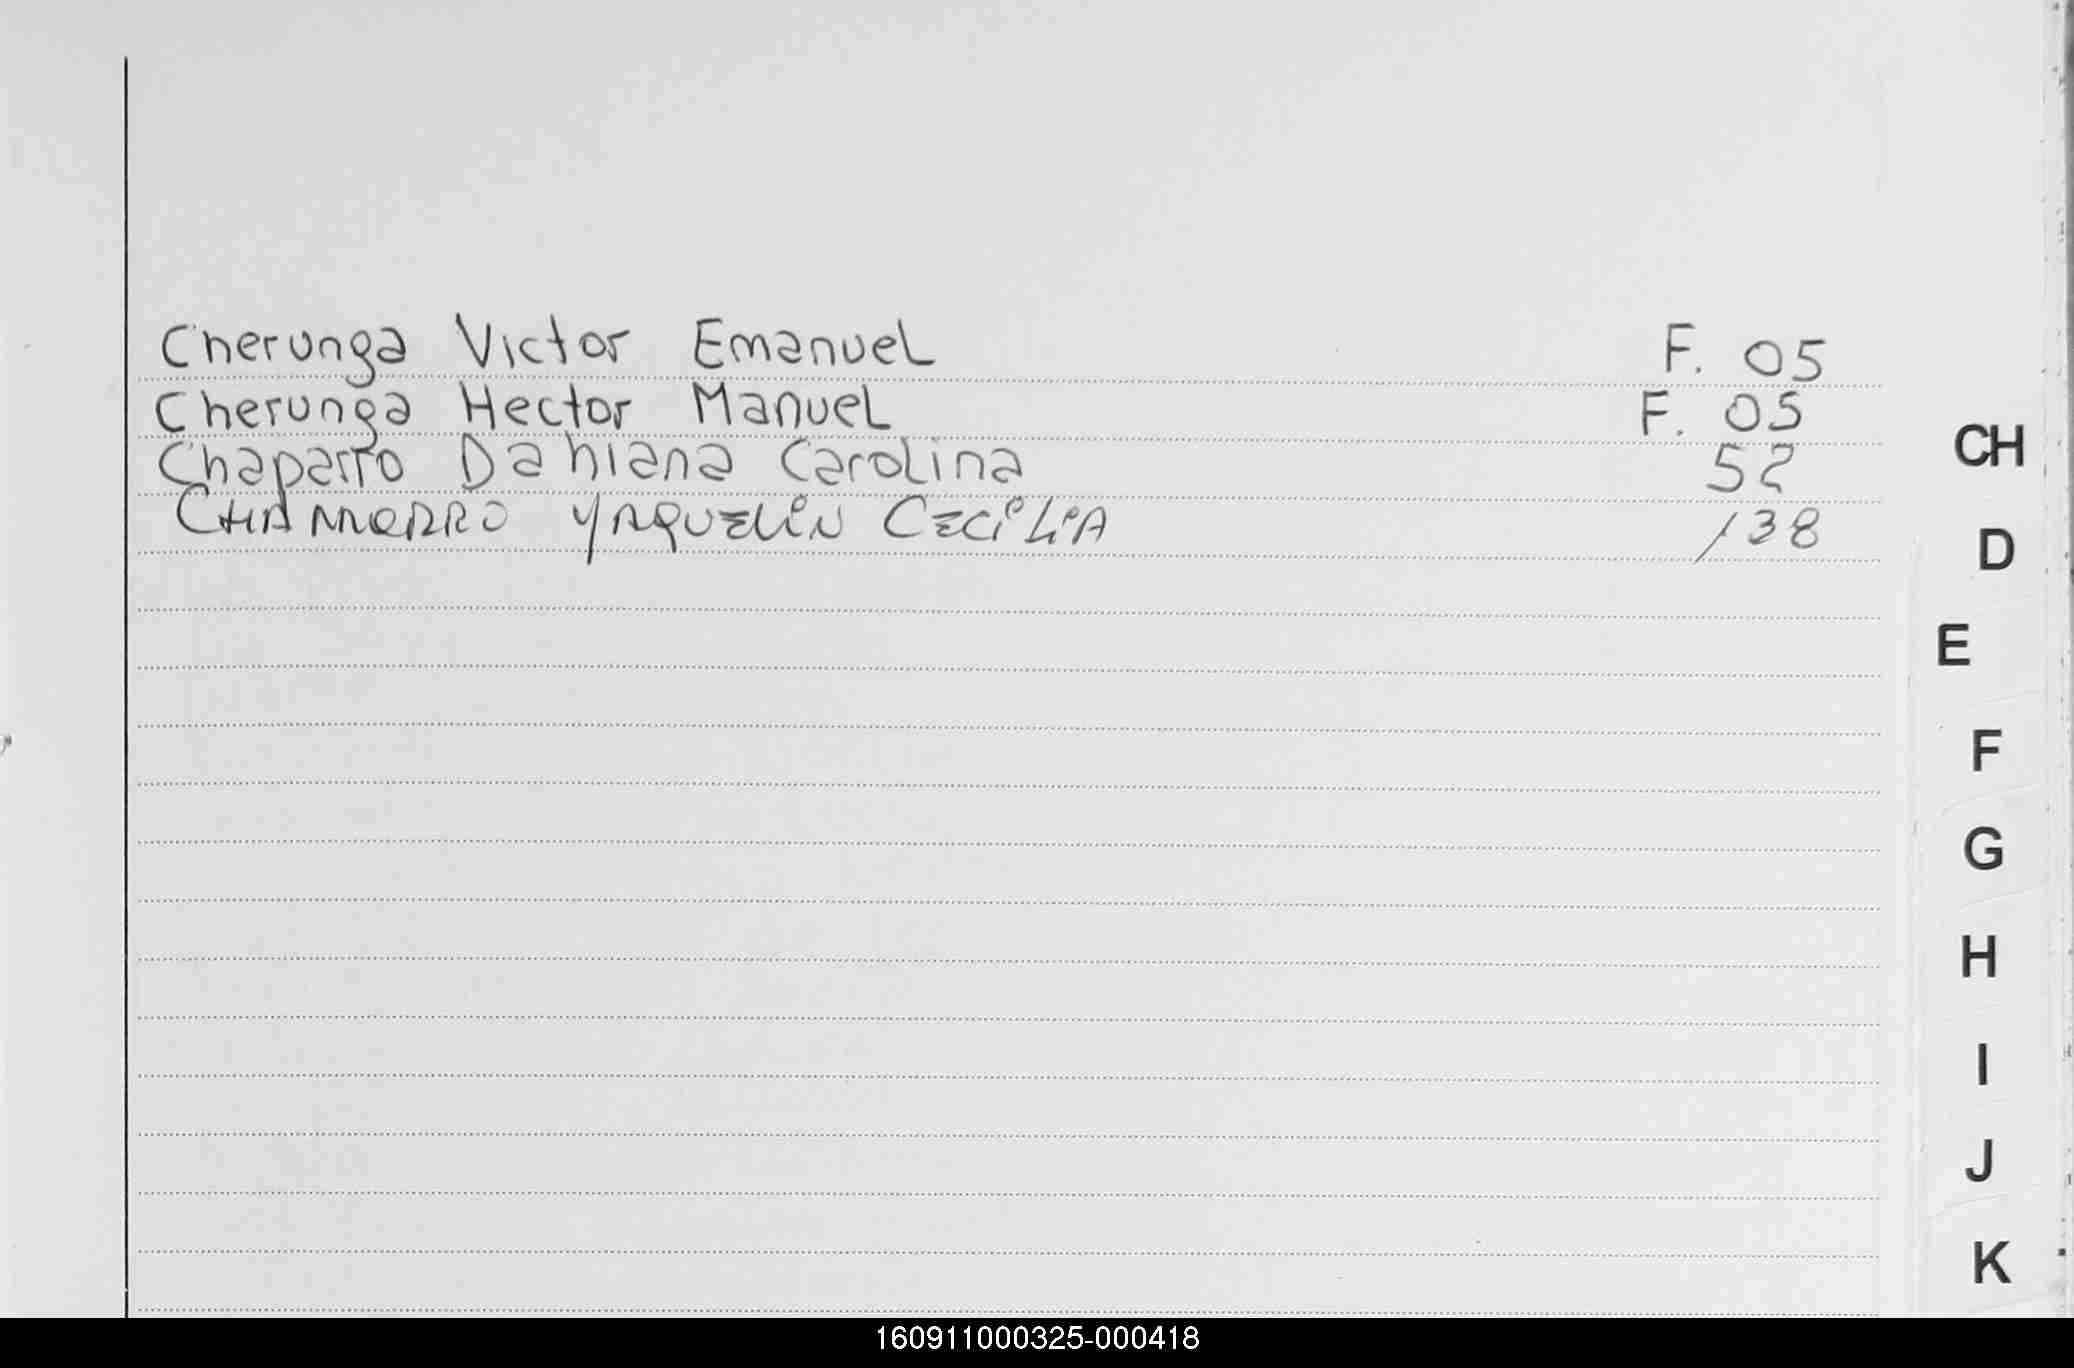 Cherunga Victor Emanuel F. 05
Cherunga Hector Manuel F. 05
Chaparro Dahiana Carolina 52
CHAMORRO YAQUELIN CECILIA 138
CH
D
E
F
G
H
I
J
K
160911000325-000418